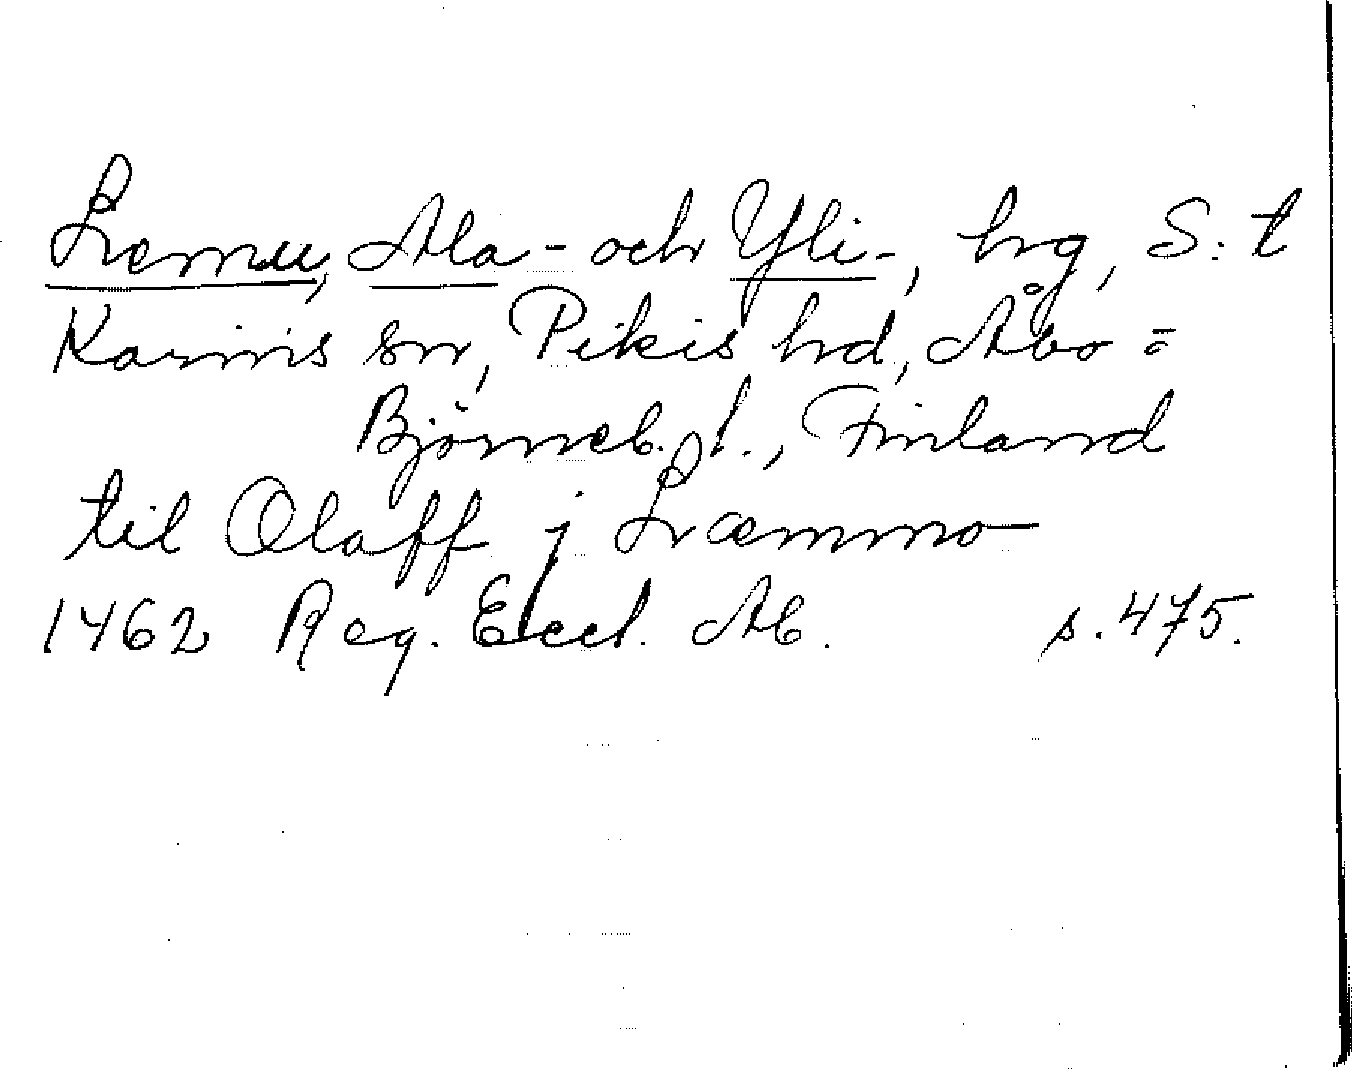 Lemu, Ala- och Yli-, hrg, S:t
Karins sn, Pikis hd, Åbo-
Björneb. l., Finland
til Olaff j Læmmo
1462 Reg. Eccl. Ab. s. 475.